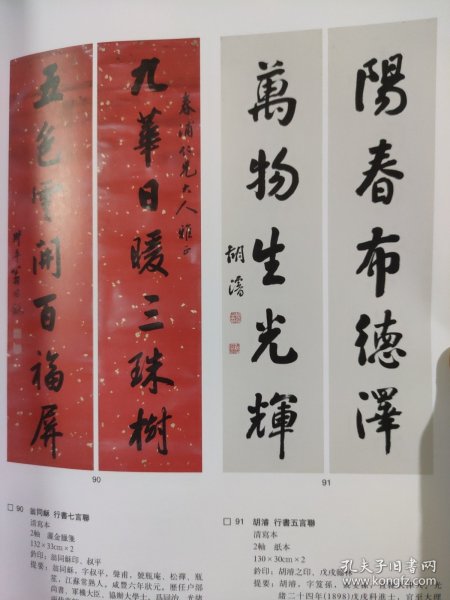 九華日暖三珠樹
春浦仁兄大人雅正
五色雲開百福屏
叔平翁同龢
陽春布德澤
萬物生光輝
胡濬
90
91
90 翁同龢 行書七言聯
清寫本
2軸 灑金臘箋
132×33cm×2
鈐印：翁同龢印、叔平
提要：翁同龢，字叔平，聲甫，號瓶庵、松禪，瓶
笙，江蘇常熟人，咸豐六年狀元，歷任户部
尚書、軍機大臣、協辦大學士，爲同治、光緒
91 胡濬 行書五言聯
清寫本
2軸 紙本
130×30cm×2
鈐印：胡濬之印、戊戌
提要：胡濬，字笈孫，
光緒二十四年(1898)戊戌科進士，官至大理
孔夫子旧书网